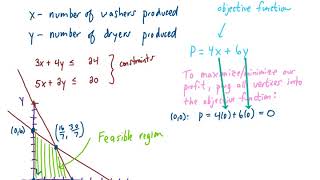 X - number of washers produced
Y - number of dryers produced
3x + 4y ≤ 24
5x + 2y ≤ 20
constraints
objective function
P = 4x + 6y
To maximize/minimize our
profit, plug all vertices into
the objective function:
(0,0): P = 4(0) + 6(0) = 0
Feasible region